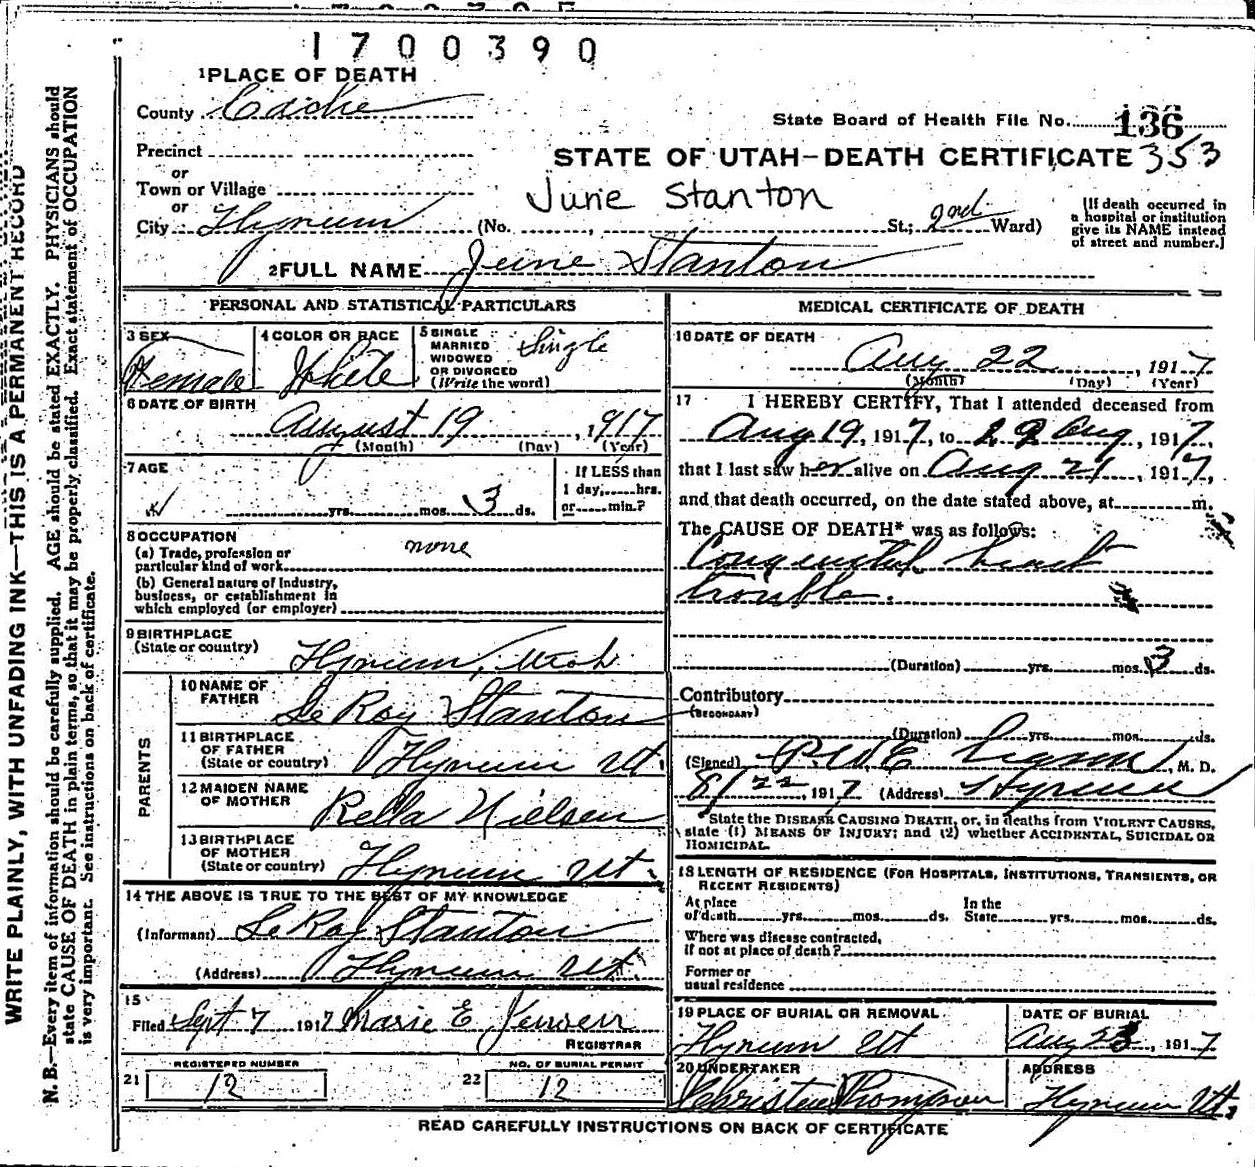 1700390
1 PLACE OF DEATH
County Cache
State Board of Health File No. 136
Precinct
STATE OF UTAH—DEATH CERTIFICATE 353
or
Town or Village
June Stanton
or
City Hyrum (No. , St.; 2nd Ward)
[If death occurred in
a hospital or institution
give its NAME instead
of street and number.]
2 FULL NAME June Stanton
PERSONAL AND STATISTICAL PARTICULARS
3 SEX
Female
4 COLOR OR RACE
White
5 SINGLE
MARRIED
WIDOWED
OR DIVORCED
(Write the word)
Single
6 DATE OF BIRTH
August 19, 1917
(Month) (Day) (Year)
7 AGE
yrs. mos. 3 ds.
If LESS than
1 day, hrs.
or min.?
8 OCCUPATION
(a) Trade, profession or
particular kind of work none
(b) General nature of Industry,
business, or establishment in
which employed (or employer)
9 BIRTHPLACE
(State or country) Hyrum, Utah
PARENTS
10 NAME OF
FATHER Le Roy Stanton
11 BIRTHPLACE
OF FATHER
(State or country) Hyrum Ut.
12 MAIDEN NAME
OF MOTHER Rella Nielsen
13 BIRTHPLACE
OF MOTHER
(State or country) Hyrum Ut.
14 THE ABOVE IS TRUE TO THE BEST OF MY KNOWLEDGE
(Informant) Le Roy Stanton
(Address) Hyrum Ut.
15
Filed Sept 7 1917 Marie E Jensen
REGISTRAR
REGISTERED NUMBER
21 12
NO. OF BURIAL PERMIT
22 12
MEDICAL CERTIFICATE OF DEATH
16 DATE OF DEATH
Aug 22, 1917
(Month) (Day) (Year)
17 I HEREBY CERTIFY, That I attended deceased from
Aug 19, 1917, to 22 Aug, 1917,
that I last saw her alive on Aug 21, 1917,
and that death occurred, on the date stated above, at m.
The CAUSE OF DEATH* was as follows:
Congenital heart
trouble.
(Duration) yrs. mos. 3 ds.
Contributory
(SECONDARY)
(Duration) yrs. mos. ds.
(Signed) , M. D.
8/22, 1917 (Address) Hyrum
*State the DISEASE CAUSING DEATH, or, in deaths from VIOLENT CAUSES,
state (1) MEANS OF INJURY; and (2) whether ACCIDENTAL, SUICIDAL OR
HOMICIDAL.
18 LENGTH OF RESIDENCE (FOR HOSPITALS, INSTITUTIONS, TRANSIENTS, OR
RECENT RESIDENTS)
At place
of death yrs. mos. ds.
In the
State yrs. mos. ds.
Where was disease contracted,
if not at place of death?
Former or
usual residence
19 PLACE OF BURIAL OR REMOVAL
Hyrum Ut
DATE OF BURIAL
Aug 23, 1917
20 UNDERTAKER
Thompson
ADDRESS
Hyrum Ut.
READ CAREFULLY INSTRUCTIONS ON BACK OF CERTIFICATE
WRITE PLAINLY, WITH UNFADING INK—THIS IS A PERMANENT RECORD
N. B.—Every item of information should be carefully supplied. AGE should be stated EXACTLY. PHYSICIANS should
state CAUSE OF DEATH in plain terms, so that it may be properly classified. Exact statement of OCCUPATION
is very important. See instructions on back of certificate.